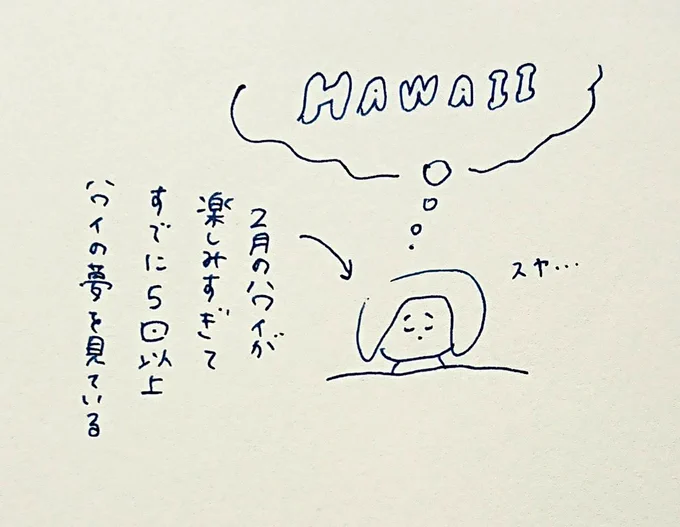 HAWAII
2月のハワイが
楽しみすぎて
すでに5回以上
ハワイの夢を見ている
スヤ…